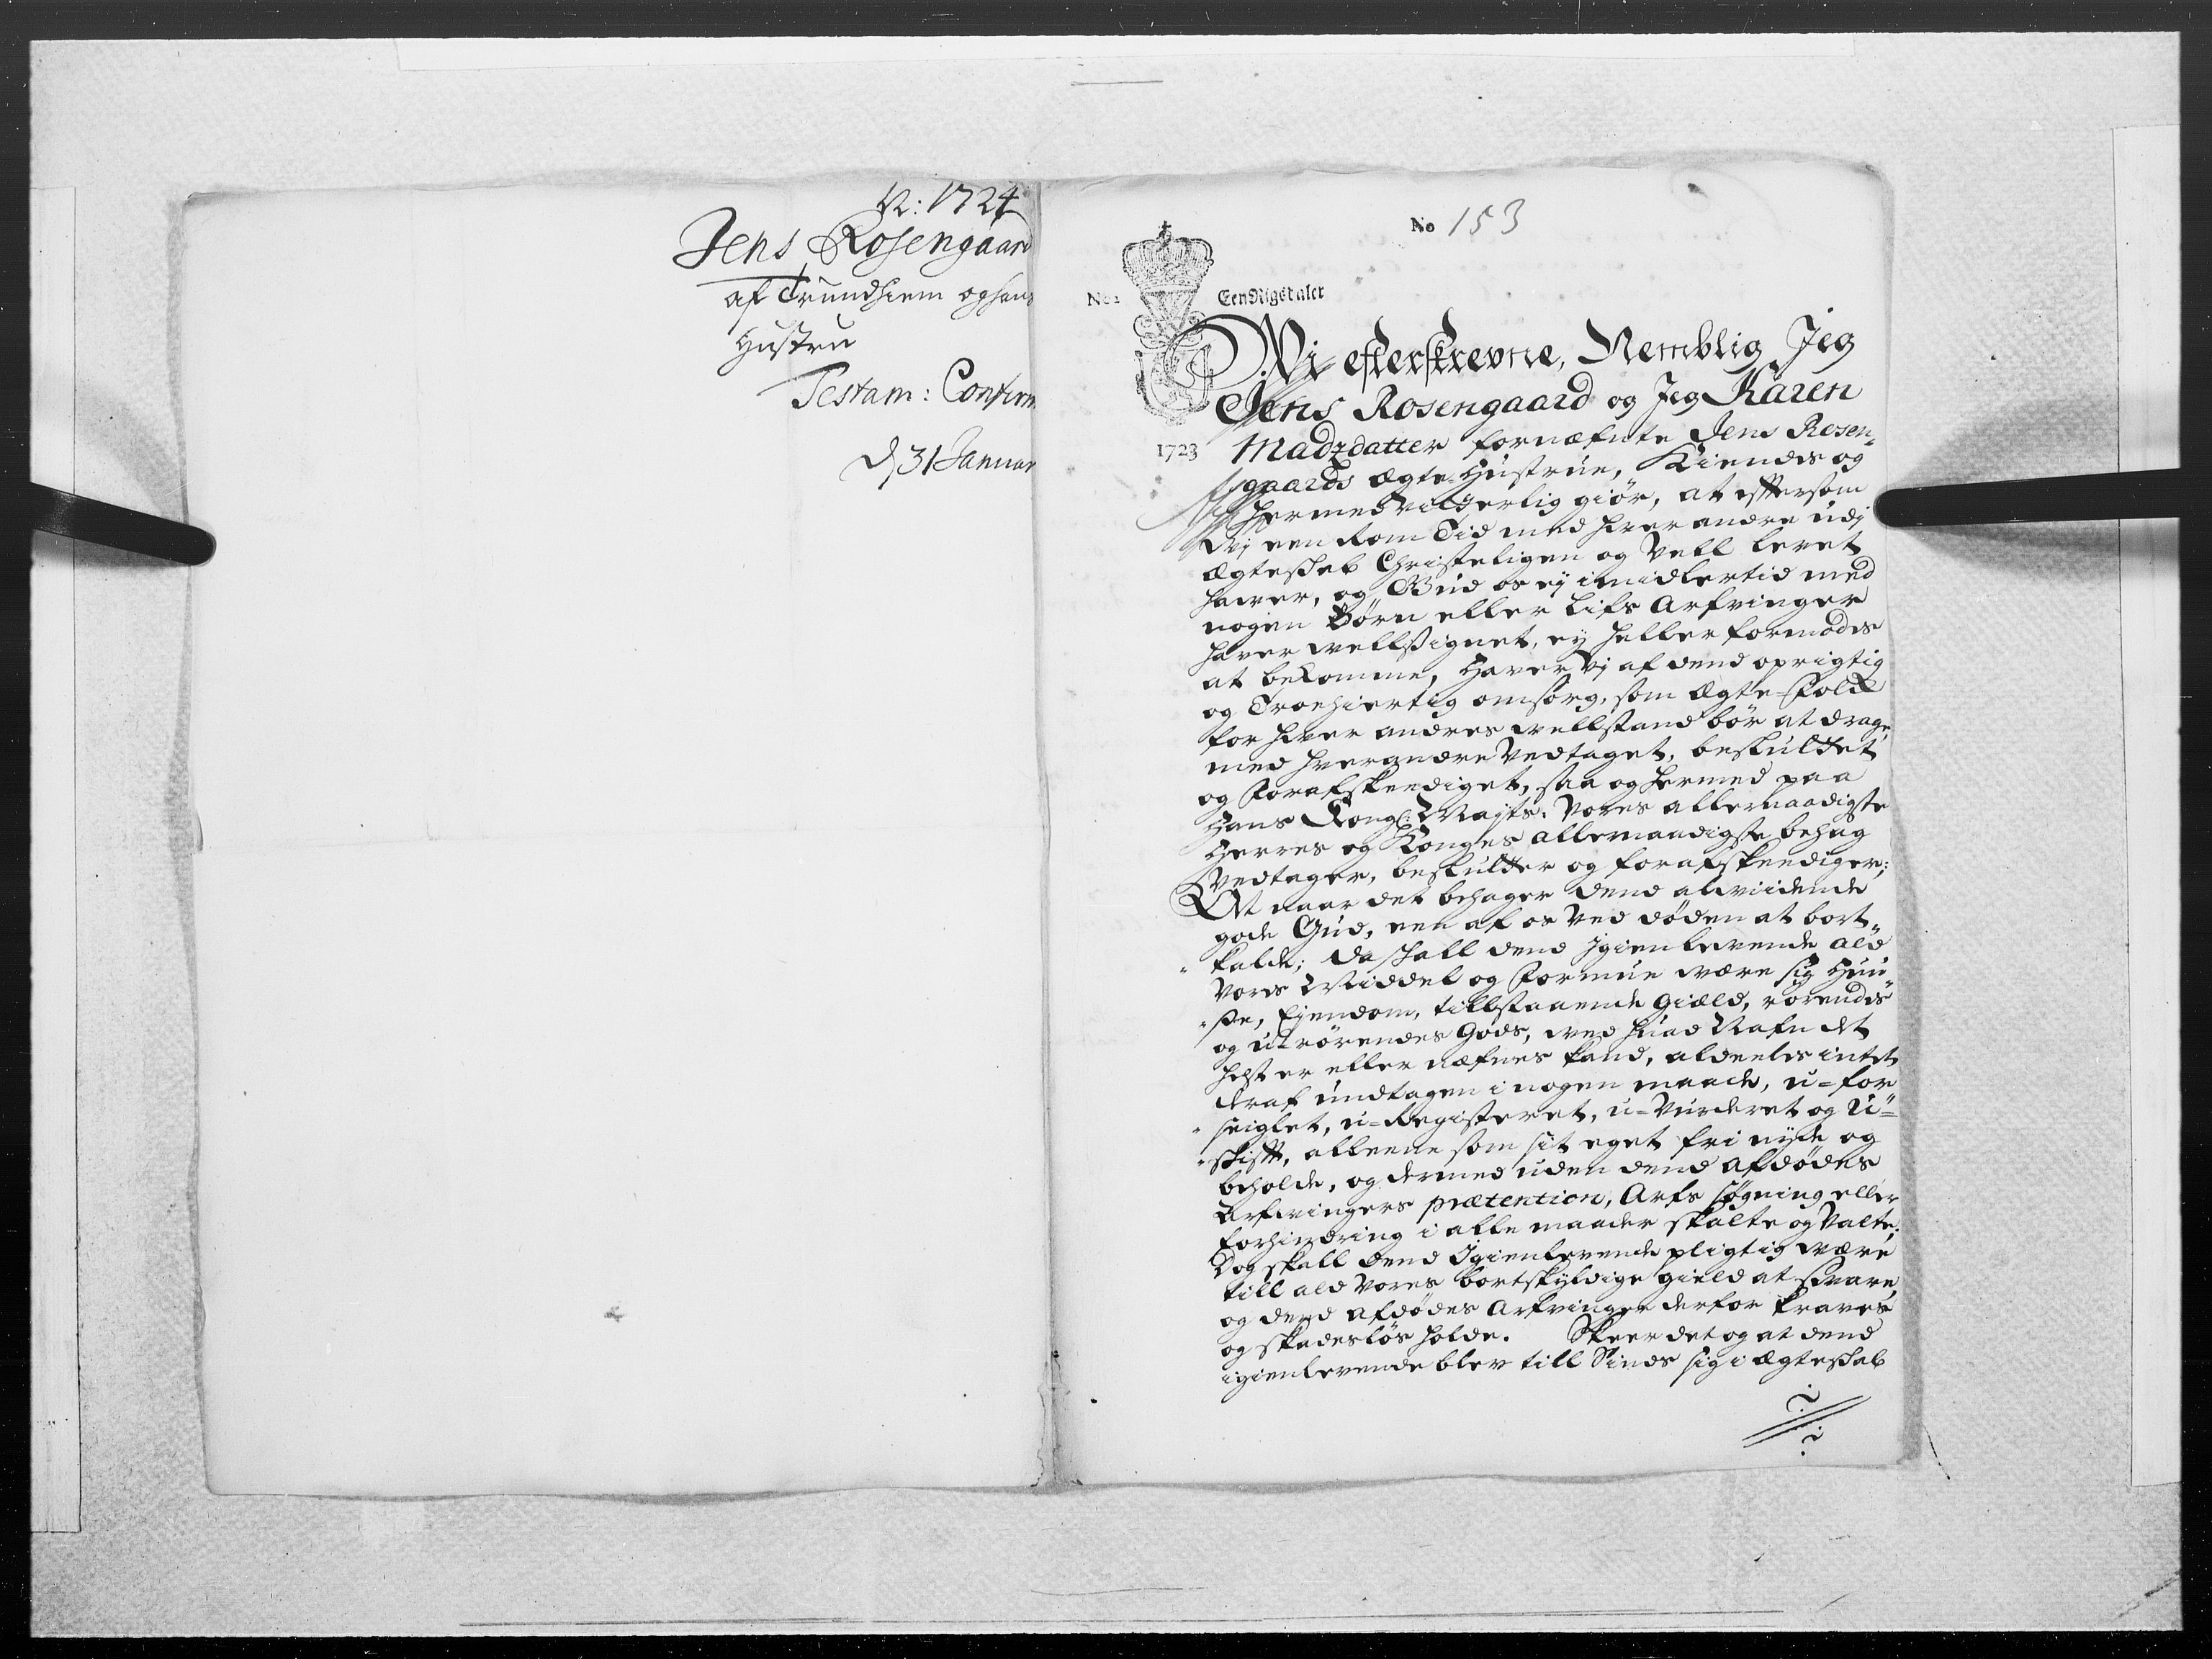 N: 1724
Jens Rosengaard
af Trundhiem og hans
Hustru
Testam: Confirm
d 31 Januar
No 153
No 1
Een Rigsdaler
1723
Wi efterskrevne, Nemblig Jeg
Jens Rosengaard og Jeg Karen
Madzdatter fornæfnte Jens Rosen-
gaards ægte Hustrue, Kiendes og
hermed vitterlig giør, at effttersom
Wj een kom Tid med hver andre udj
Ægteskab Christeligen og Vell levet
hawer, og Gud os ej imidlertid med
nogen Børn eller Lifs Arfvinger
hawer wellsignet, ey heller formodes
at bekomme, Hawer Vj af dend oprigtig
og Troehiertig omsorg, som Ægte-Folk
for hver andres wellstand bør at drage,
med hverandre Vedtaget, besluttet
og Forafskeediget, saa og hermed paa
Hans Kongl: Maÿts. Vores allernaadigste
Herres og Konges allernaadigste behag
Vedtager, beslutter og forafskeediger;
At naar det behager dend alviidende
gode Gud, een af os ved døden at bort-
kalde; da skall dend Igienlevende ald
Vores Middel og Formue være sig Huu-
se, Ejendom, tillstaaende Giæld, rørendes
og u-rørendes Gods, wed huad Nafn det
helst er eller næfnes kand, aldeeles intet
deraf undtagen i nogen maade, u-for
seiglet, u-Registeret, u-Vurderet og U-
skifft, alleene som sit eget frj nyde og
beholde, og dermed uden dend afdødes
Arfwingers prætention, Arfs søgning eller
forhindring i alle maader skalte og Valte;
Dog skall dend Igienlevende pligtig være
till ald vores bortskyldige gield at svare,
og dend afdødes Arfvinger derfor kraves
og skadesløs holde. Skeer det og at dend
igienlevende blev till Sinds sig i ægteskab